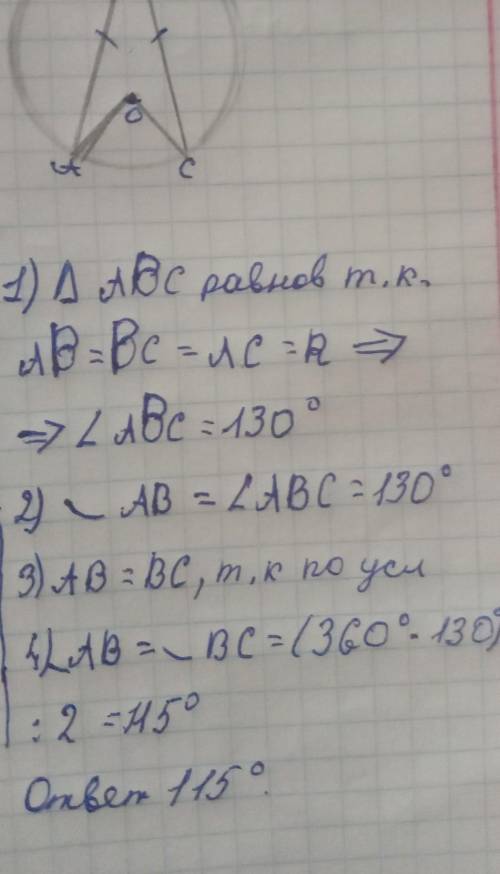 O
A C
1) Δ ABC равнов т.к.
AB = BC = AC = R ⇒
⇒ ∠ ABC = 130°
2) ◡ AB = ∠ABC = 130°
3) AB = BC, т.к по усл
4) ◡AB = ◡ BC = (360° - 130°)
: 2 = 115°
Ответ 115°.